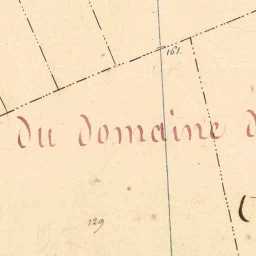 161.
du Domaine
129